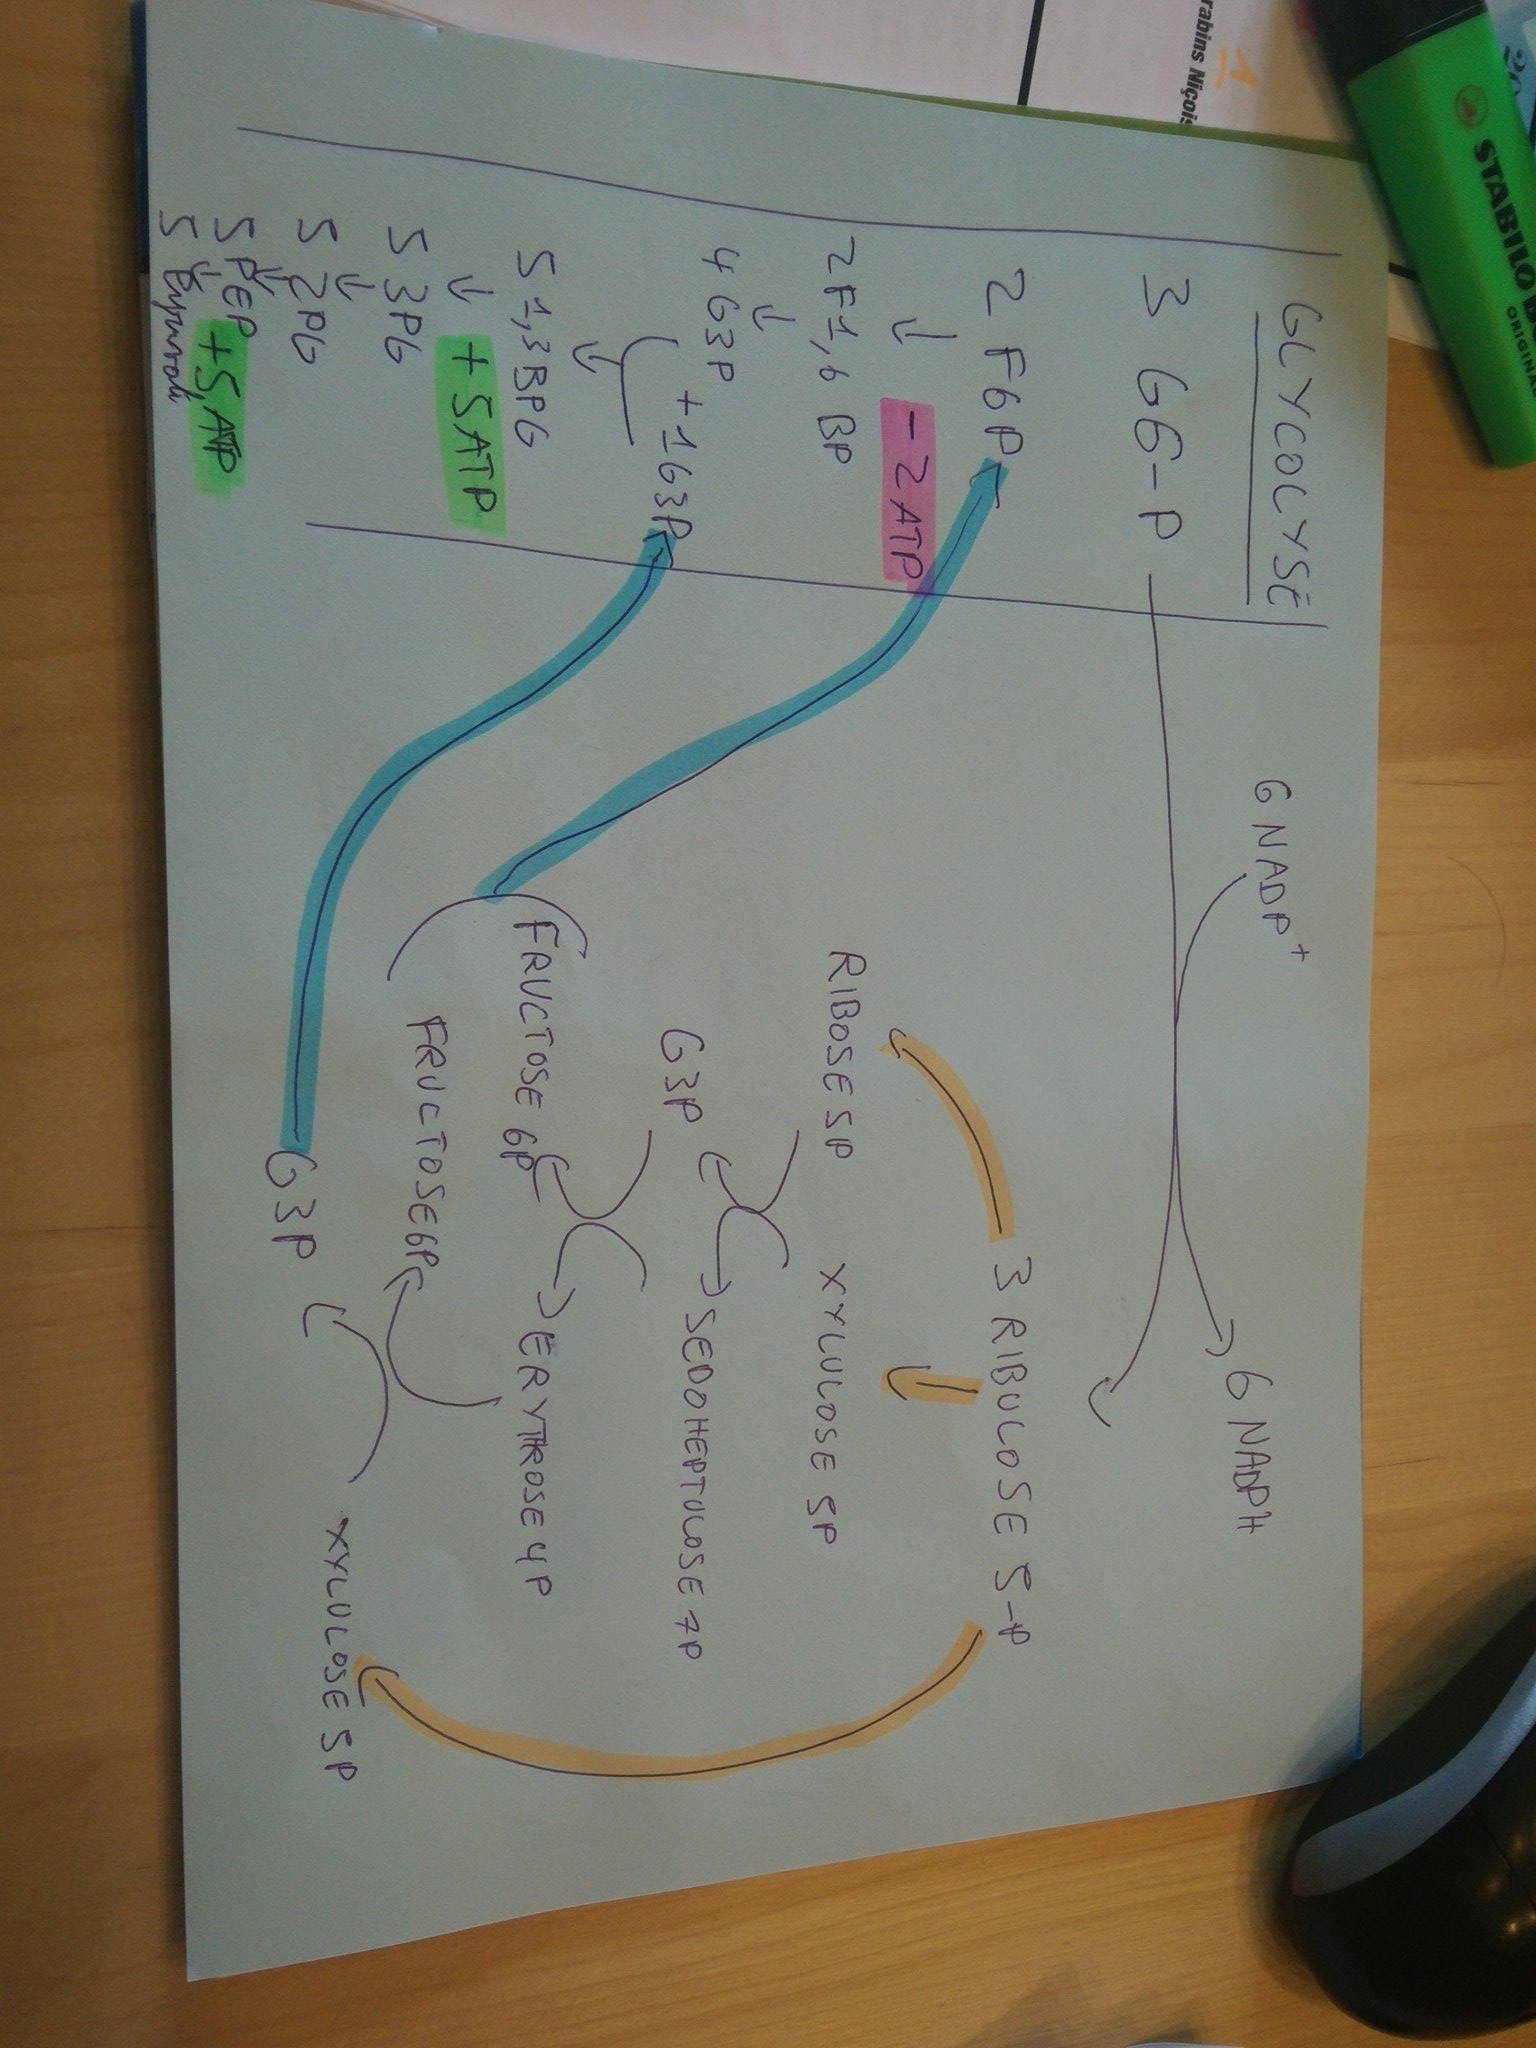 GLYCOLYSE
3 G6-P
6 NADP+
6 NADPH
2 F6P
- 2 ATP
2 F1,6 BP
4 G3P
+ 1 G3P
5 1,3 BPG
+ 5 ATP
5 3PG
5 2PG
5 PEP
+ 5 ATP
5
3 RIBULOSE 5-P
RIBOSE 5P
XYLULOSE 5P
G3P
SEDOHEPTULOSE 7P
FRUCTOSE 6P
ERYTHROSE 4P
FRUCTOSE 6P
G3P
XYLULOSE 5P
rabins Niçois
1
STABILO
ORIGINAL